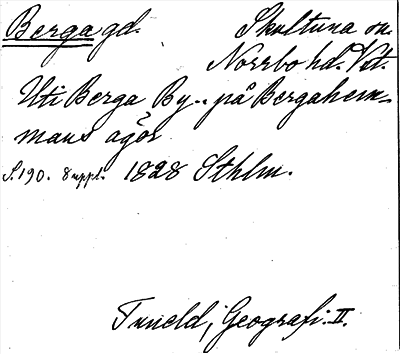 Berga gd. Skultuna sn.
Norrbo hd. Vstm.
Uti Berga By .. på Bergahem-
mans ägor
S. 190. 8 uppl. 1828 Sthlm.
Tuneld, Geografi. II.